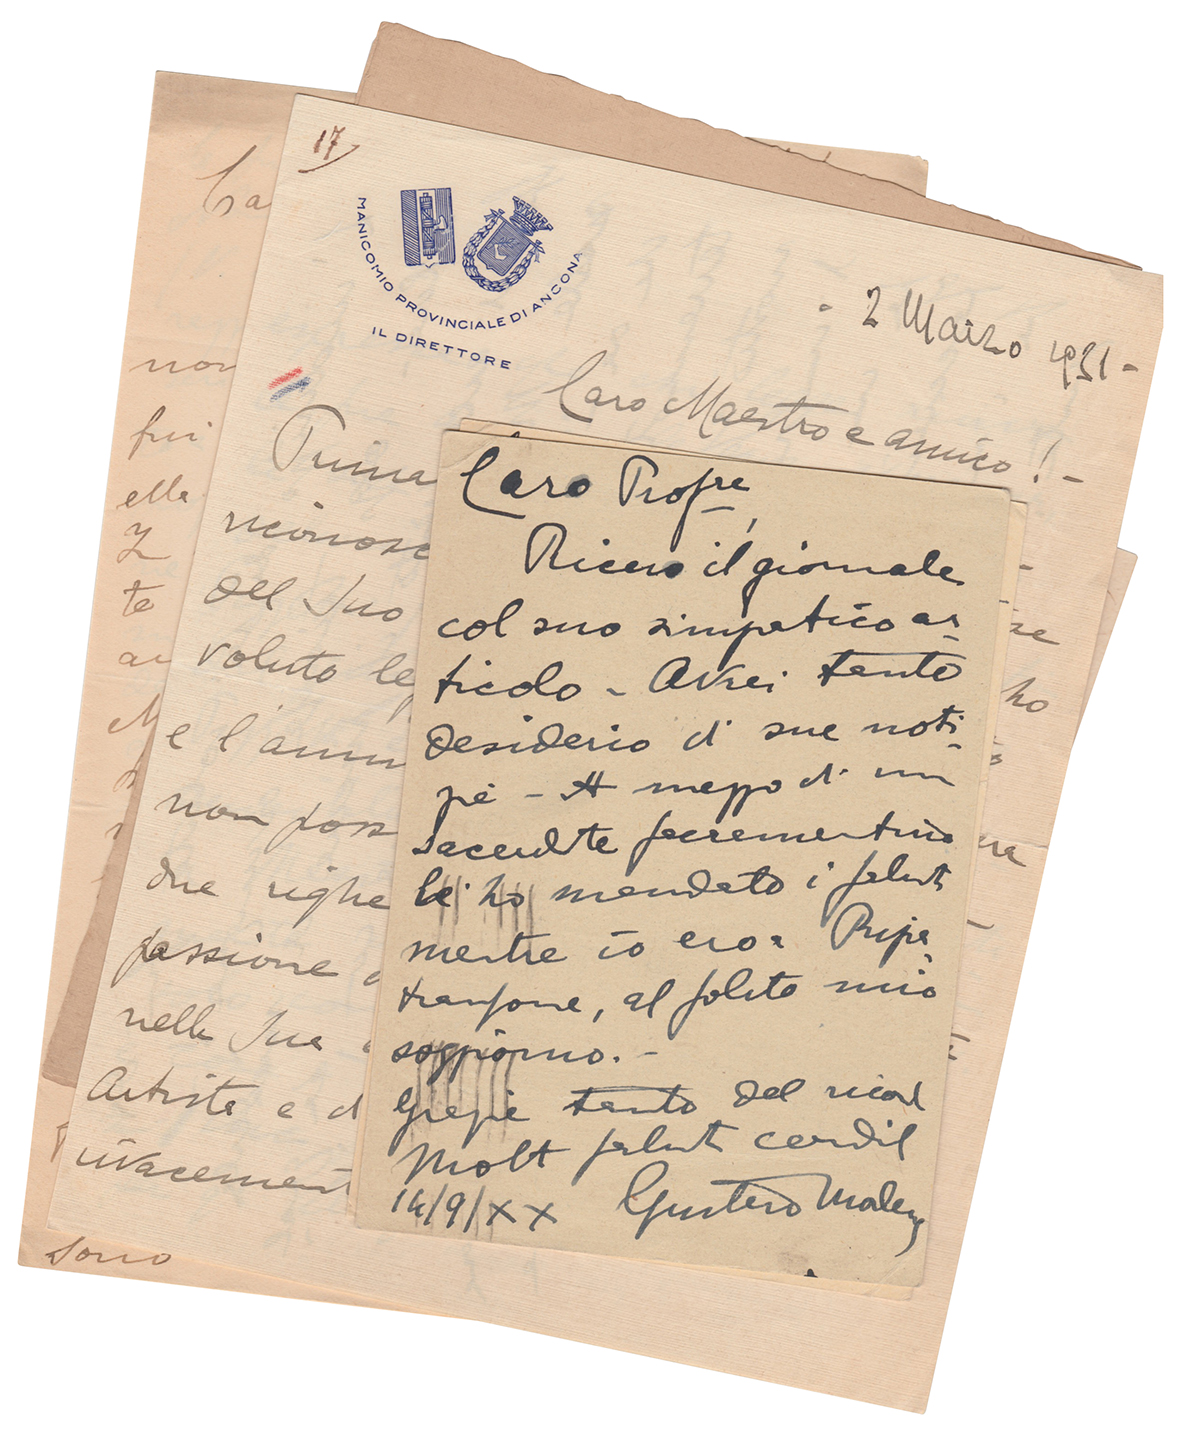 Ca
non
fui
ella
te
17
MANICOMIO PROVINCIALE DI ANCONA
IL DIRETTORE
- 2 Marzo 1931 -
Caro Maestro e amico ! -
Prima
riconosc
del Suo
voluto leg
e l'annu
non poss
due righe
passione
nella Sua
Artista e d
vivacement
sono
ho
Caro Profre,
Ricevo il giornale
col suo simpatico ar-
ticolo - Avrei tanto
desiderio di sue noti-
zie - A mezzo di un
sacerdote sacramentino
le ho mandato i saluti
mentre io ero a Ripa-
transone, al solito mio
soggiorno. -
Grazie tanto del ricordo
Molti saluti cordiali
14/9/XX Gustavo